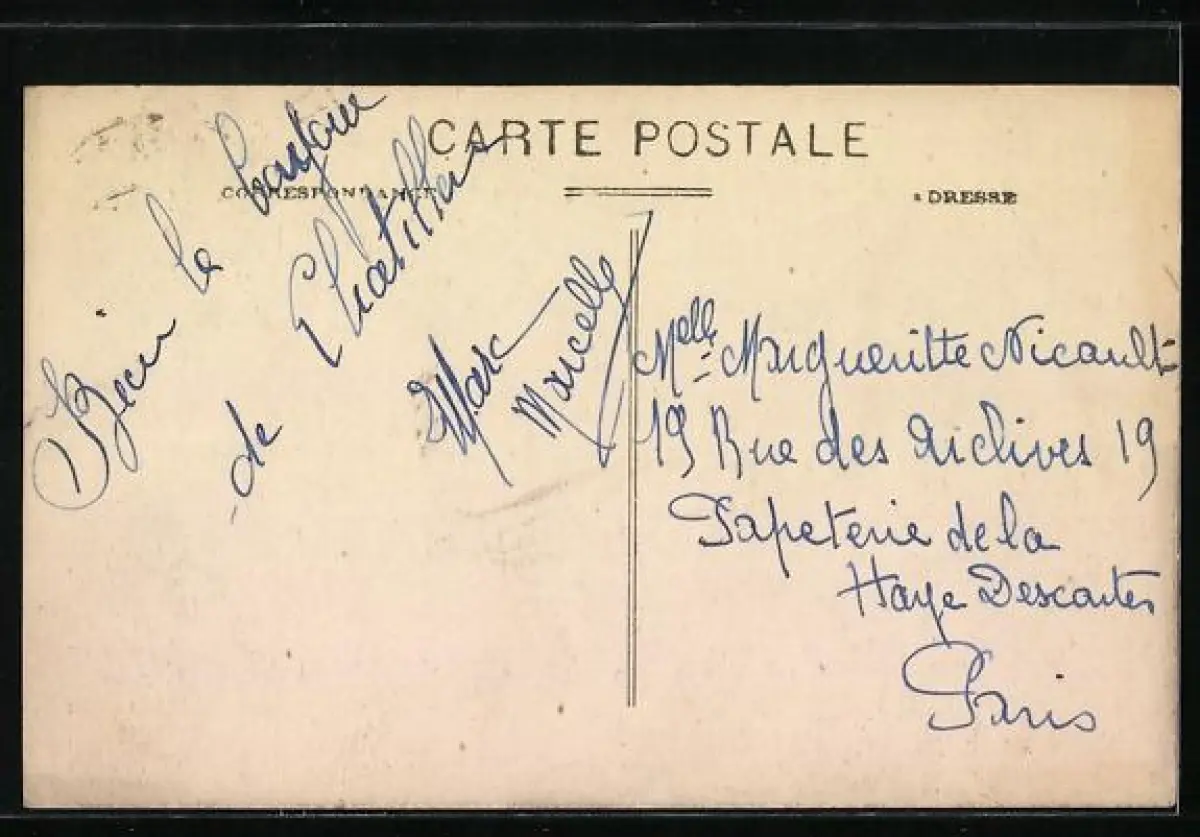 CARTE POSTALE
CORRESPONDANCE
ADRESSE
Bien le bonjour
de Chatillon
Marc
Marcelle
Melle Margueritte Nicault
19 Rue des Archives 19
Papeterie de la
Haye Descartes
Paris